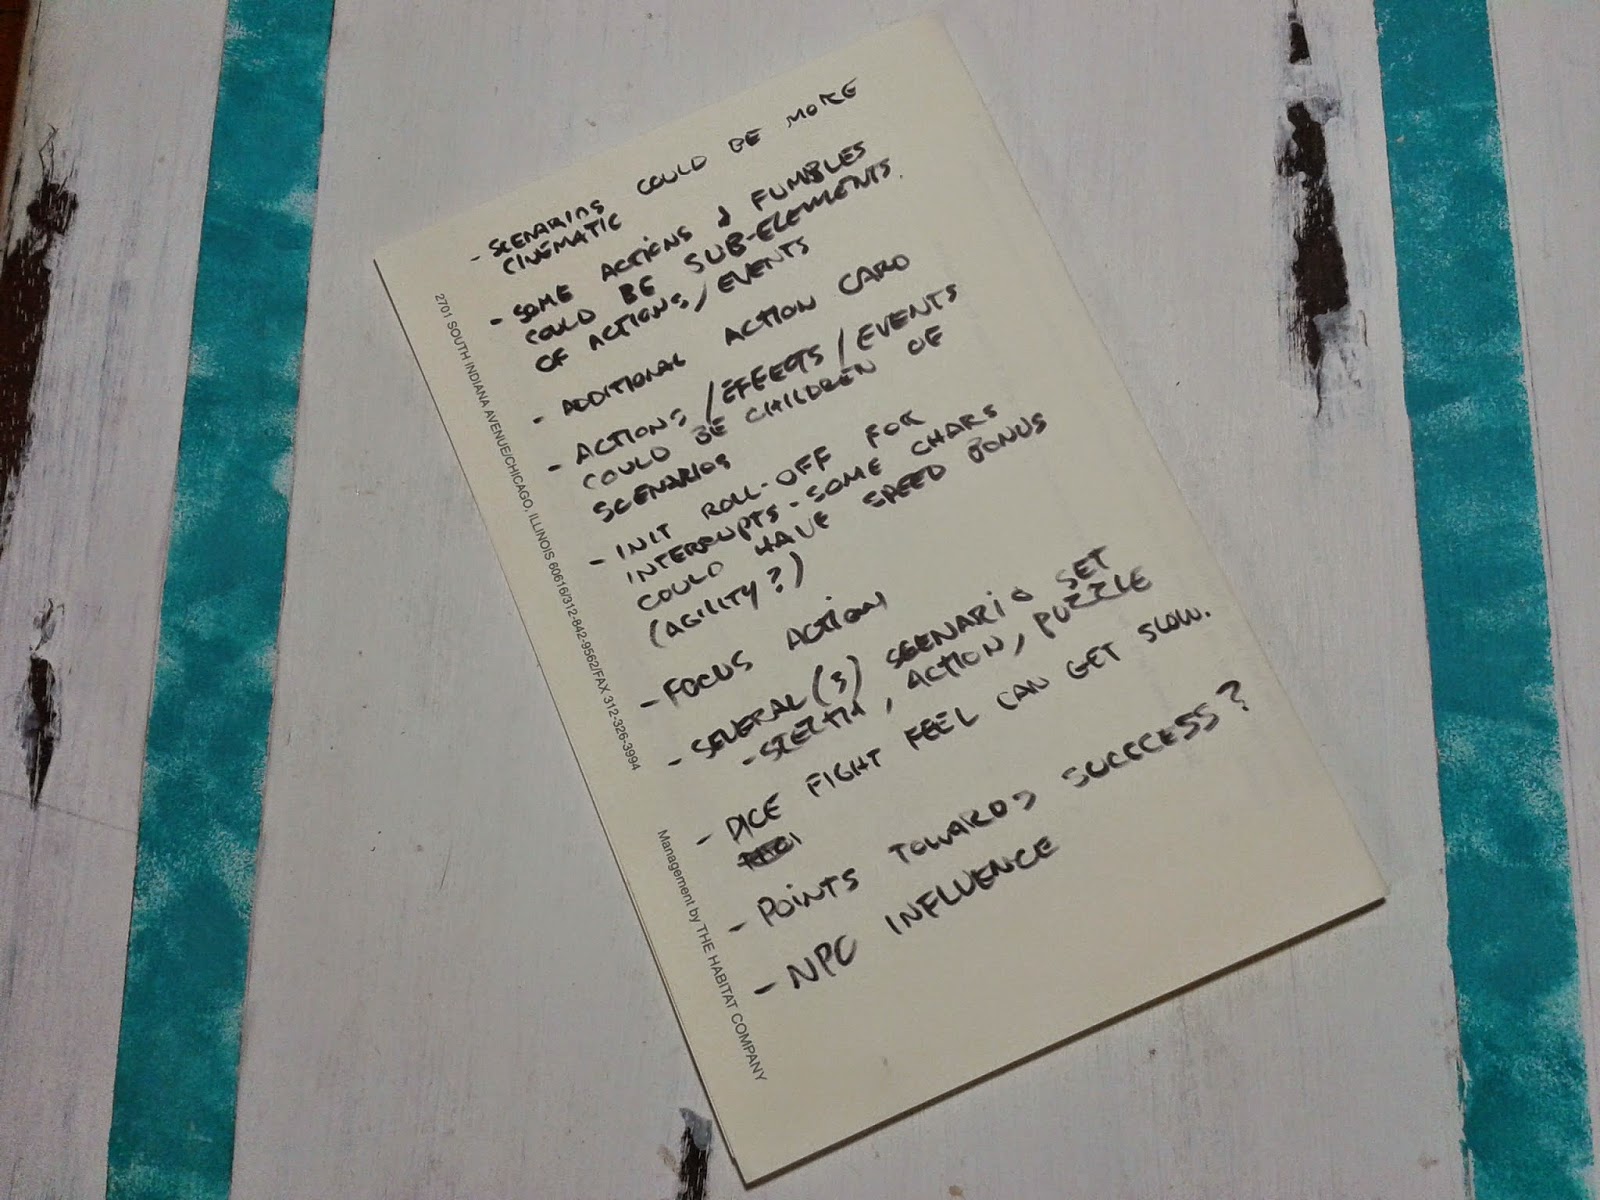 - SCENARIOS COULD BE MORE
CINEMATIC
- SOME ACTIONS & FUMBLES
COULD BE SUB-ELEMENTS.
OF ACTIONS/EVENTS
- ADDITIONAL ACTION CARD
- ACTIONS/EFFECTS/EVENTS
COULD BE CHILDREN OF
SCENARIOS
- INIT ROLL-OFF FOR
INTERRUPTS - SOME CHARS
COULD HAVE SPEED BONUS
(AGILITY?)
- FOCUS ACTION
- SEVERAL (3) SCENARIO SET
- , ACTION, PUZZLE
- DICE FIGHT FEEL CAN GET SLOW.
- POINTS TOWARDS SUCCCESS?
- NPC INFLUENCE
2701 SOUTH INDIANA AVENUE/CHICAGO, ILLINOIS 60616/312-842-9562/FAX 312-326-3994
Management by THE HABITAT COMPANY